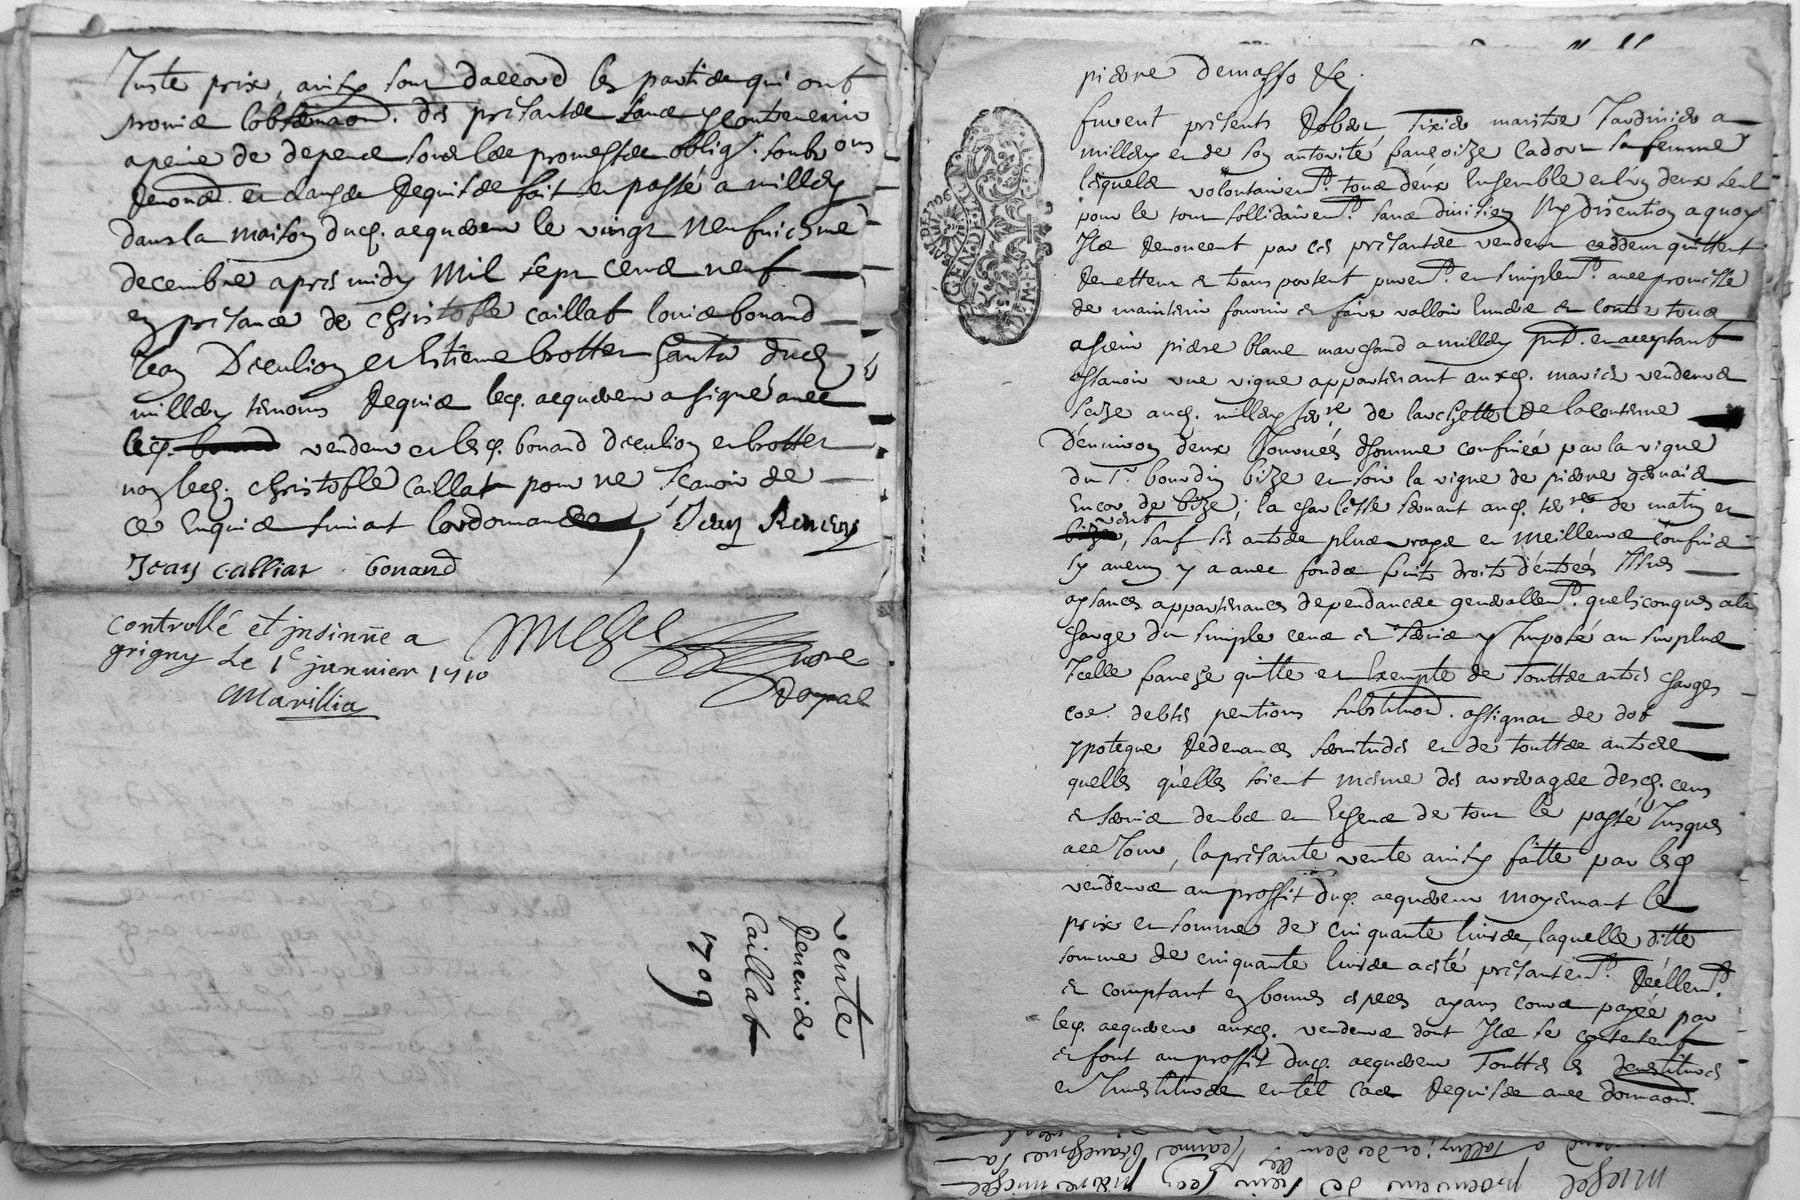 Juste prix, ainsy sont daccord les parties qui ont
promis lobservaon. des présantes sans y contrevenir
a peine de depens soubs les promesses obliga. soubs ons
renons. et clauses Requises fait et passé a millery
dans la maison dud. acquereur le vingt neufviesme
decembre apres midy Mil sept cens neuf
en présance de christofle caillat louis bonand
Jean Decullion et Estienne brottet habitans dud.
millery temoins Requis led. acquereur a signé avec
led. vendeur et lesd. bonand decullion et brottet
non led. christofle Caillat pour ne scavoir de
ce Enquis suivant lordonnance, Jean Renevey
Jean calliat . bonand
controllé et insinué a
grigny Le 1er janvier 1710
Marillia
nore
Royal
vente
Renevier
Caillat
1709
pierre demasso &c.
furent présents Rober Tixier maistre Jardinier a
millery et de son autorité françoize Cadour sa femme
lesquels volontairemt. tous deux Ensemble et lun deux seul
pour le tout sollidairemt. sans division ny discution a quoy
Ils Renoncent par ces présantes vendent ceddent quittent
Remettent et transportent puremt. et simplemt. avec promesse
de maintenir fournir et faire valloir Envers et contre tous
a sieur pierre blanc marchand a millery pnt. et acceptant
assavoir une vigne appartenant auxd. mariés vendeurs
scize aud. millery terre. de larchette de la contenue
Denviron deux Journés dhomme confinée par la vigne
du Sr. bourdin bize et soir la vigne de pierre gervais
Encor de bize, la charlesse servant aud. terres de matin et
vent, sauf ses autres plus vrays et meilleurs confins
sy aucun y a avec fonds fruits droits dentrées Issues
aysances appartenances dependances generallemt. quelsconques a la
charge du simple cens et servis y Imposé au surplus
Icelle franche quitte et Exempte de Touttes autres charges
coe. debtes pentions substituon. assignat de dot
ypoteque Redevances servitudes et de touttes autres
quelles quelles soient mesme des arrerages desd. cens
et servis deubs et Escheus de tout le passé Jusques
a ce Jour, la présante vente ainsy faitte par lesd.
vendeurs au proffit dud. acquereur moyenant le
prix et somme de cinquante livres, laquelle ditte
somme de cinquante livres a esté présantemt. Réellemt.
et comptant en bonnes especes ayans cours payée par
led. acquereur auxd. vendeurs dont Ils se contentent
et font au proffit dud. acquereur Touttes les devestitures
et Investitures en tel cas Requises avec donnaon.